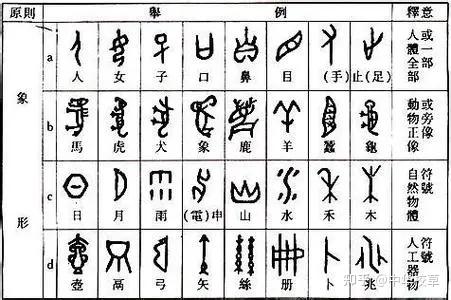 原則 舉 例 釋意
象形
a 人 女 子 口 鼻 目 (手) 止(足)
人體全部
或一部
b 馬 虎 犬 象 鹿 羊 蠶 龜
動物正像
或旁像
c 日 月 雨 (電)申 山 水 禾 木
自然物體
符號
d 壺 鬲 弓 矢 絲 册 卜 兆
人工器物
符號
知乎